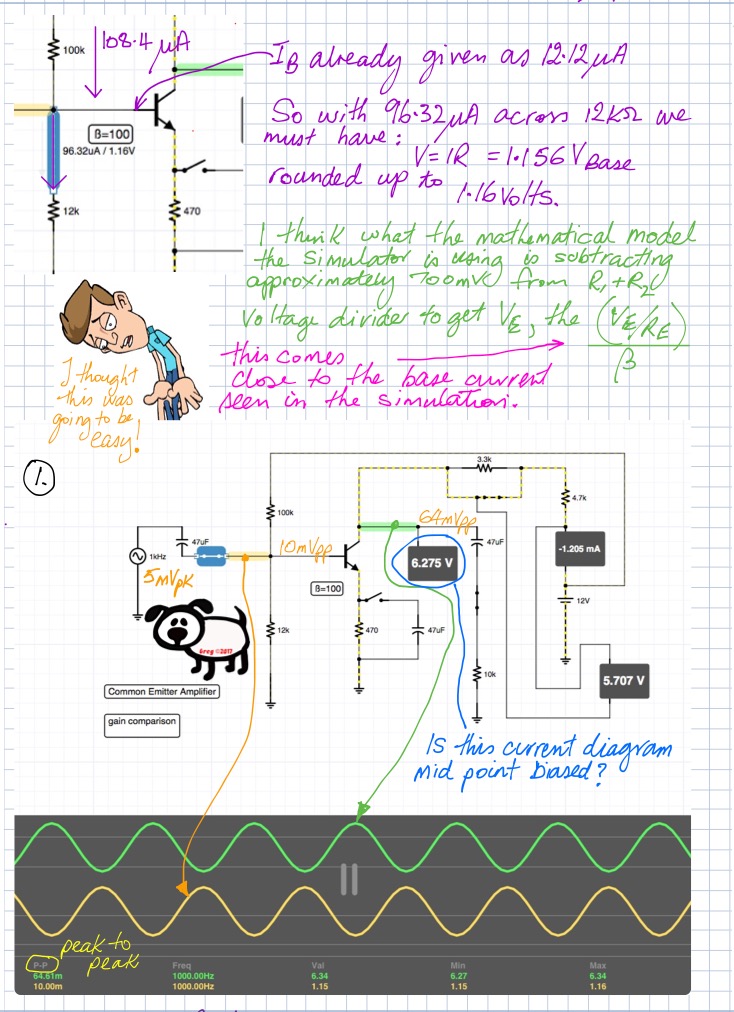 100k
108.4 µA
IB already given as 12.12µA
So with 96.32µA across 12kΩ we
must have:
V=IR = 1.156 VBase
rounded up to
1.16 Volts.
ß=100
96.32uA / 1.16V
12k
470
I think what the mathematical model
the simulator is using is subtracting
approximately 700mV from R1+R2
voltage divider to get VE, the (VE/RE)
β
this comes
close to the base current
seen in the simulation.
I thought
this was
going to be
easy!
1.
3.3k
100k
4.7k
64mVpp
47uF
1kHz
10mVpp
47uF
6.275 V
-1.205 mA
5mVpk
ß=100
12V
12k
470
47uF
Greg ©2017
10k
5.707 V
Common Emitter Amplifier
gain comparison
Is this current diagram
mid point biased?
peak to
peak
P-P Freq Val Min Max
64.61m 1000.00Hz 6.34 6.27 6.34
10.00m 1000.00Hz 1.15 1.15 1.16